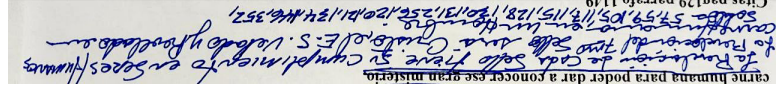 carne humana para poder dar a conocer ese gran misterio
La Revelacion de Cada Sello tiene su Cumplimiento en Seres Humanos
la Revelacion del 7mo Sello sera Cristo, el E.S. Velado y Revelado en
carne humana, en un Hombre
57, 59, 105, 117, 115, 128, 130, 131, 256, 120, 121, 134, 146, 352,
Citas pag 129 parrafo 1149